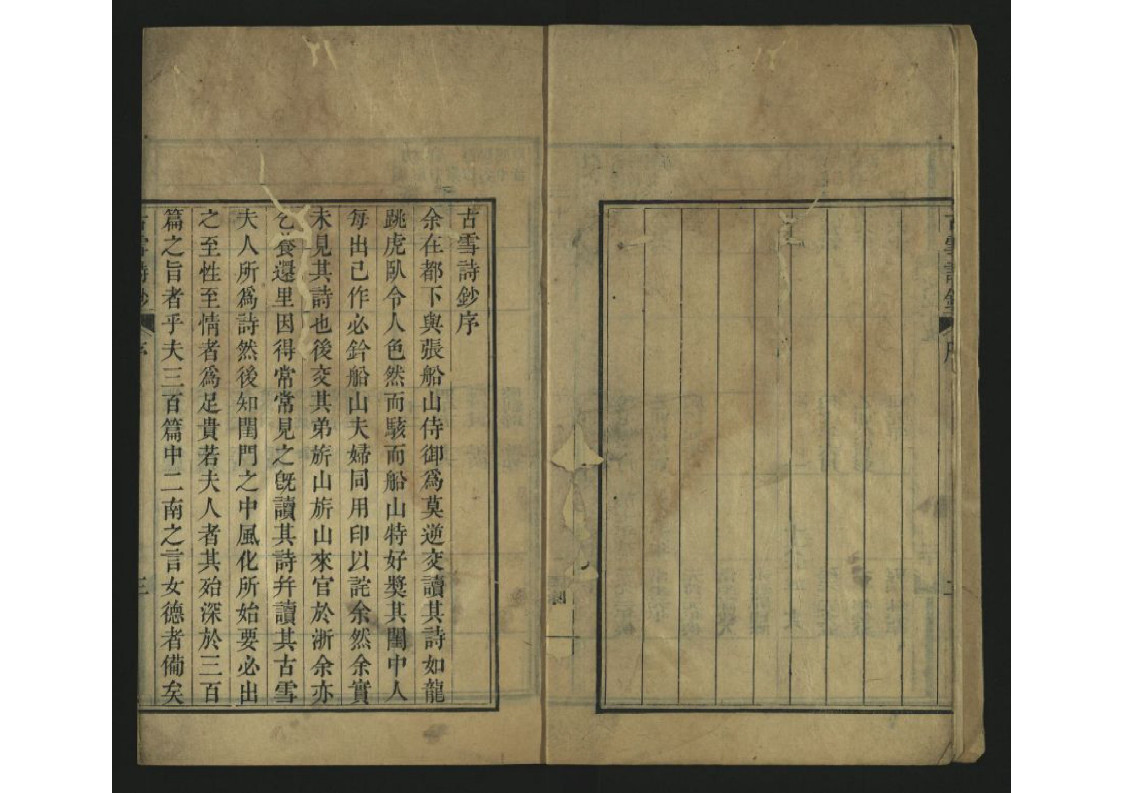 古雪詩鈔
序
二
古雪詩鈔序
余在都下與張船山侍御爲莫逆交讀其詩如龍
跳虎臥令人色然而駭而船山特好獎其閨中人
每出己作必鈐船山夫婦同用印以詫余然余實
未見其詩也後交其弟旂山旂山來官於浙余亦
乞養還里因得常常見之旣讀其詩幷讀其古雪
夫人所爲詩然後知閨門之中風化所始要必出
之至性至情者爲足貴若夫人者其殆深於三百
篇之旨者乎夫三百篇中二南之言女德者備矣
古雪詩鈔
序
三